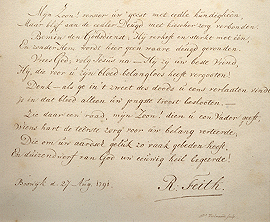 Mijn Zoon! vorder uw geest met edle kundigheen
Maar blijf aan de eedler Deugd met hooger zorg verbonden!
Bemin den Godsdienst, Hij verhoogt en sterkt met één,
En zonder Hem wordt hier geen waare deugd gevonden
Vrees God, volg Jesus na — Hij zij uw beste Vriend,
Hij, die voor u zijn bloed belangloos heeft vergooten!
Denk — als ge in 't zweet des doods is eens verlaaten vindt
je in dat bloed alleen uw jongste troost beslooten. —
Zie daar een raad, mijn Zoon! dien u een Vader geeft,
Wiens hart de teêrste zorg voor uw belang verteerde,
Die om uw aardsch geluk zo vaak gebeden heeft,
En duizendwerf van God uw eeuwig heil begeerde!
Boswijk d. 27 Aug. 1791
R. Feith.